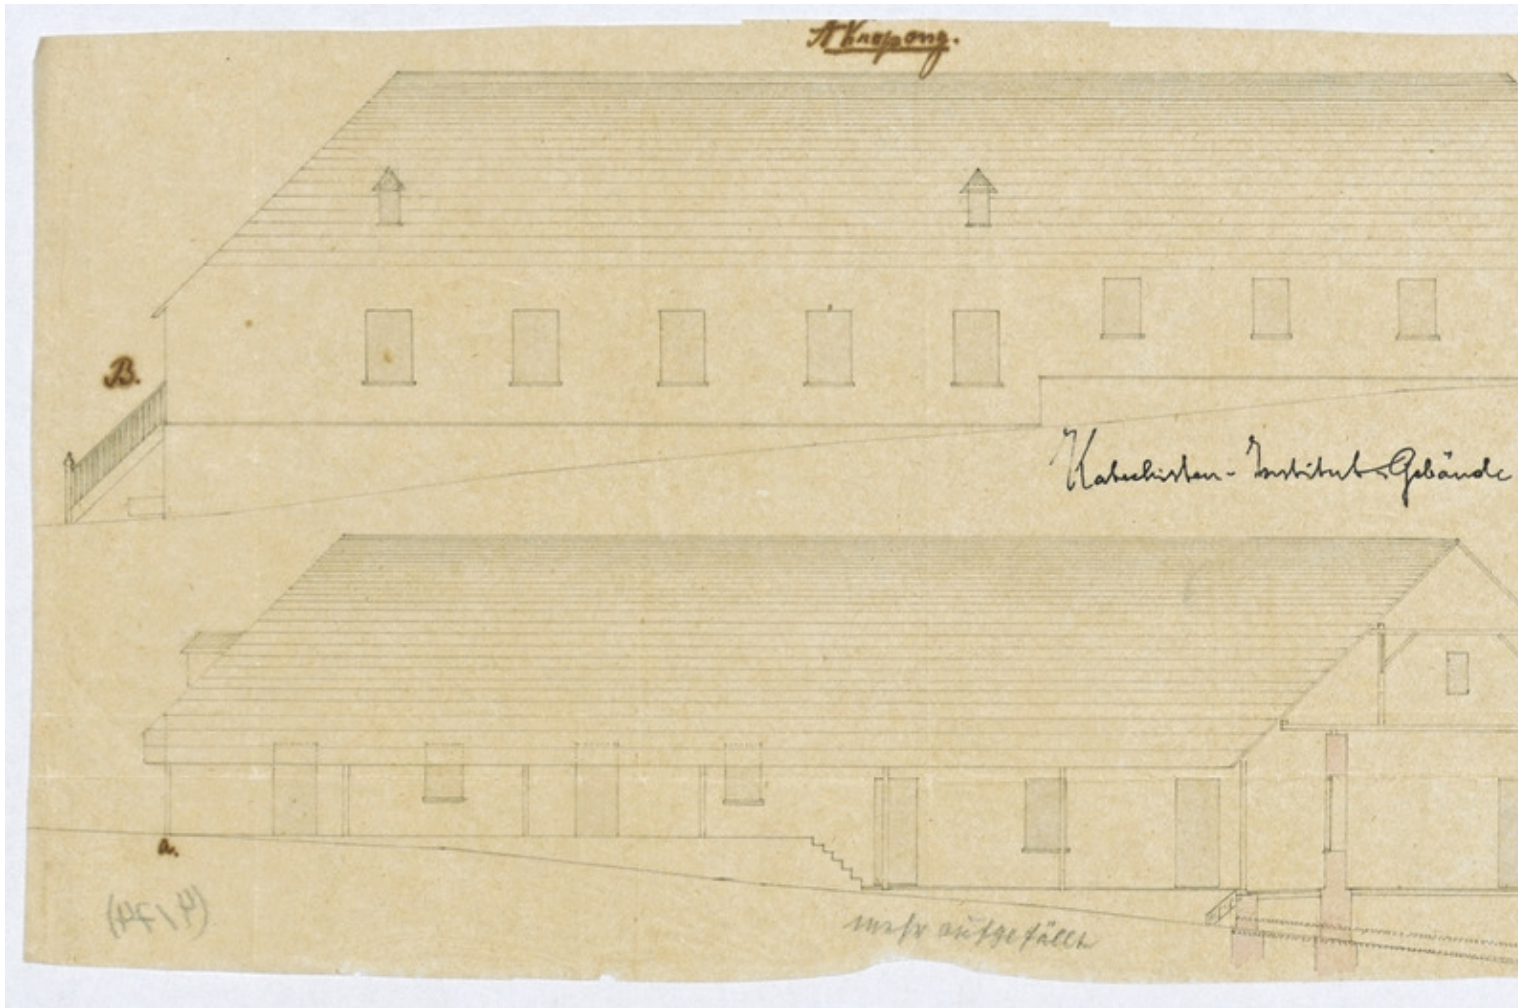 Akropong.
B.
Katechisten-Instituts-Gebäude
a.
mehr aufgefüllt